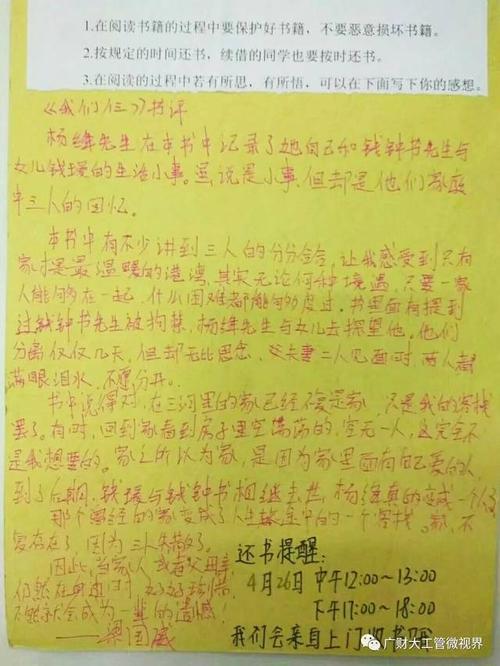 1.在阅读书籍的过程中要保护好书籍，不要恶意损坏书籍。
2.按规定的时间还书，续借的同学也要按时还书。
3.在阅读的过程中若有所思，有所悟，可以在下面写下你的感想。
《我们仨》书评
杨绛先生在本书中记录了她自己和钱钟书先生与
女儿钱瑗的生活小事。虽说是小事，但却是他们家庭
中三人的回忆。
本书中有不少讲到三人的分分合合，让我感受到只有
家才是最温暖的港湾，其实无论何种境遇，只要一家
人能够在一起，什么困难都能够度过。书里面有提到
过钱钟书先生被拘禁，杨绛先生与女儿去探望他。他们
分离仅仅几天，但却无比思念，夫妻二人见面时，两人都
满眼泪水，不愿分开。
书中说得对，在三河里的家已经不是家，只是我的客栈
罢了。有时，回到家看到房子里空荡荡的，空无一人，这完全不
是我想要的。家之所以为家，是因为家里面有自己爱的人
到了后期，钱瑗与钱钟书相继去世，杨绛真的变成一个人
那个曾经的家变成了人生旅途中的一个客栈。家，不
复存在了，因为三人失散了。
因此，当家人或者父母亲
仍然在身边时，好好珍惜，
不然就会成为一辈的遗憾！
——梁国威
还书提醒：
4月26日 中午12:00~13:00
下午17:00~18:00
我们会来自上门收书哦
广财大工管微视界